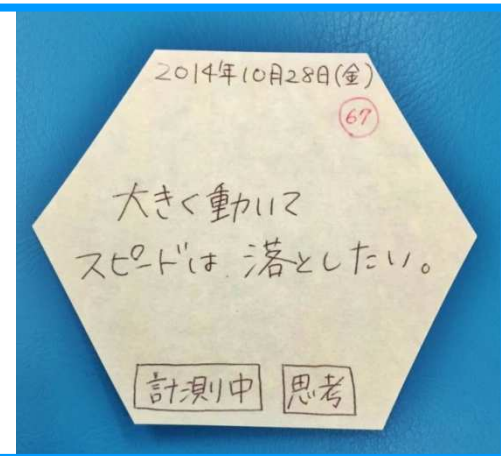 2014年10月28日(金)
67
大きく動いて
スピードは落としたい。
計測中 思考